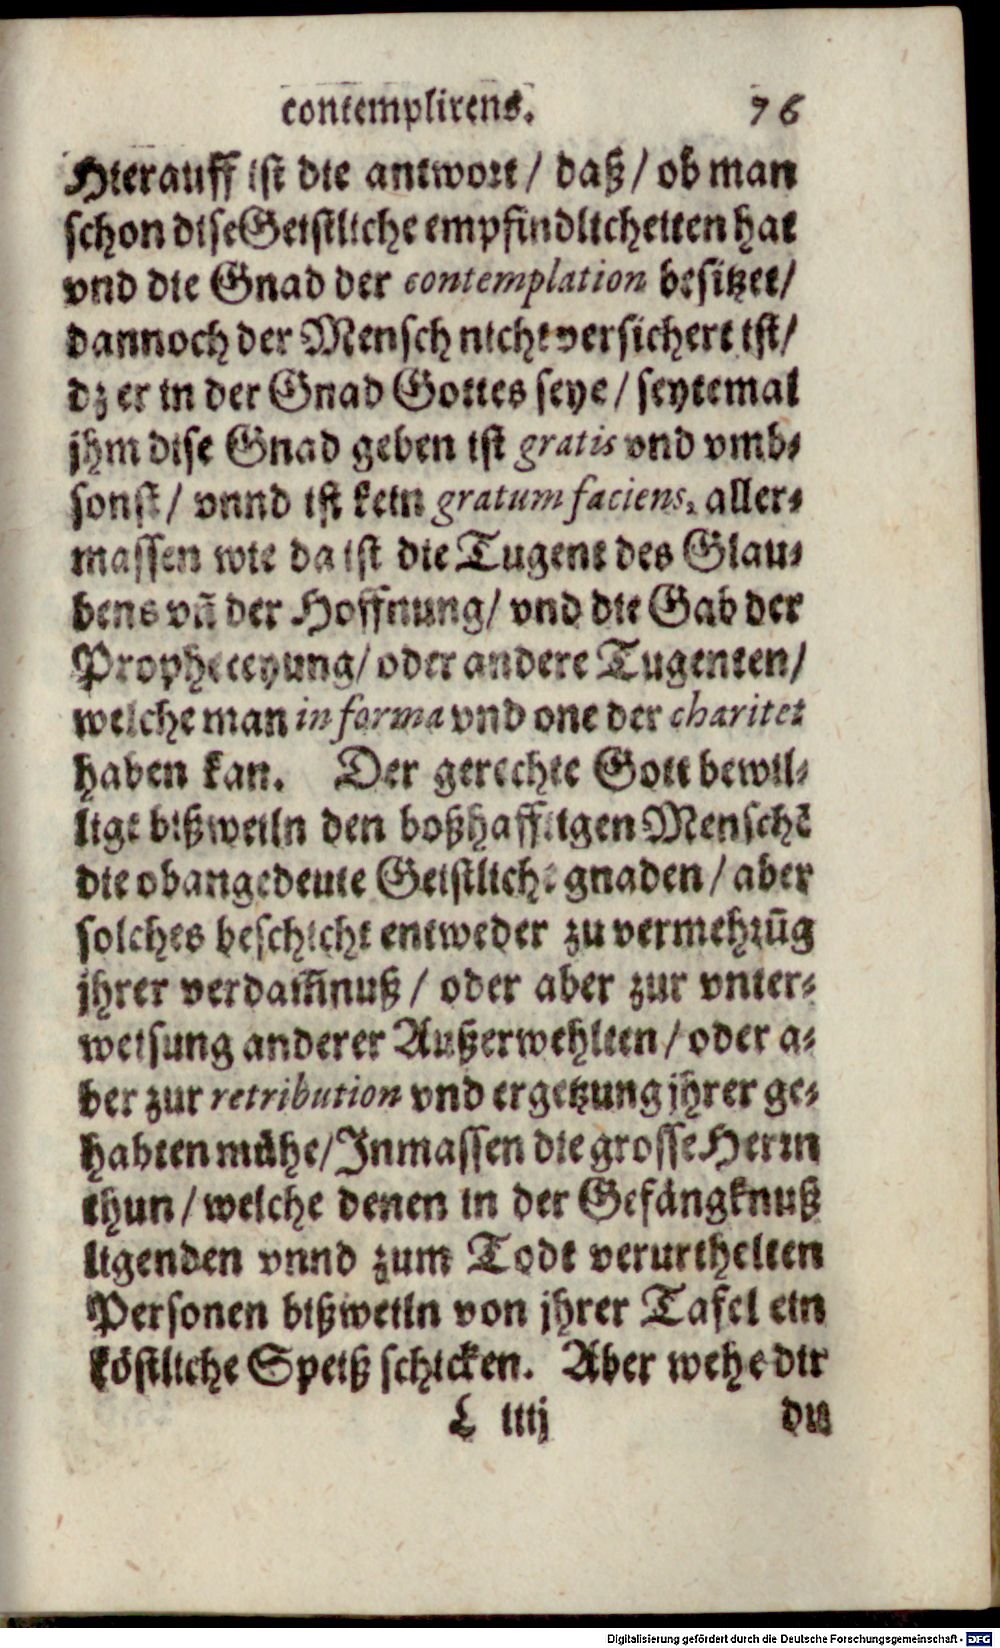 contemplirens. 76
Hierauff ist die antwort / daß / ob man
schon dise Geistliche empfindlicheiten hat
vnd die Gnad der contemplation besitzet /
dannoch der Mensch nicht versichert ist /
dz er in der Gnad Gottes seye / seytemal
jhm dise Gnad geben ist gratis vnd vmb-
sonst / vnnd ist kein gratum faciens, aller-
massen wie da ist die Tugent des Glau-
bens vñ der Hoffnung / vnd die Gab der
Propheceyung / oder andere Tugenten /
welche man in forma vnd one der charitet
haben kan. Der gerechte Gott bewil-
ligt bißweiln den boßhafftigen Menschẽ
die obangedeute Geistliche gnaden / aber
solches beschicht entweder zu vermehrũg
jhrer verdam̃nuß / oder aber zur vnter-
weisung anderer Außerwehlten / oder a-
ber zur retribution vnd ergetzung jhrer ge-
habten mühe / Inmassen die grosse Herrn
thun / welche denen in der Gefängknuß
ligenden vnnd zum Todt verurthelten
Personen bißweiln von jhrer Tafel ein
köstliche Speiß schicken. Aber wehe dir
L iiij du
Digitalisierung gefördert durch die Deutsche Forschungsgemeinschaft - DFG